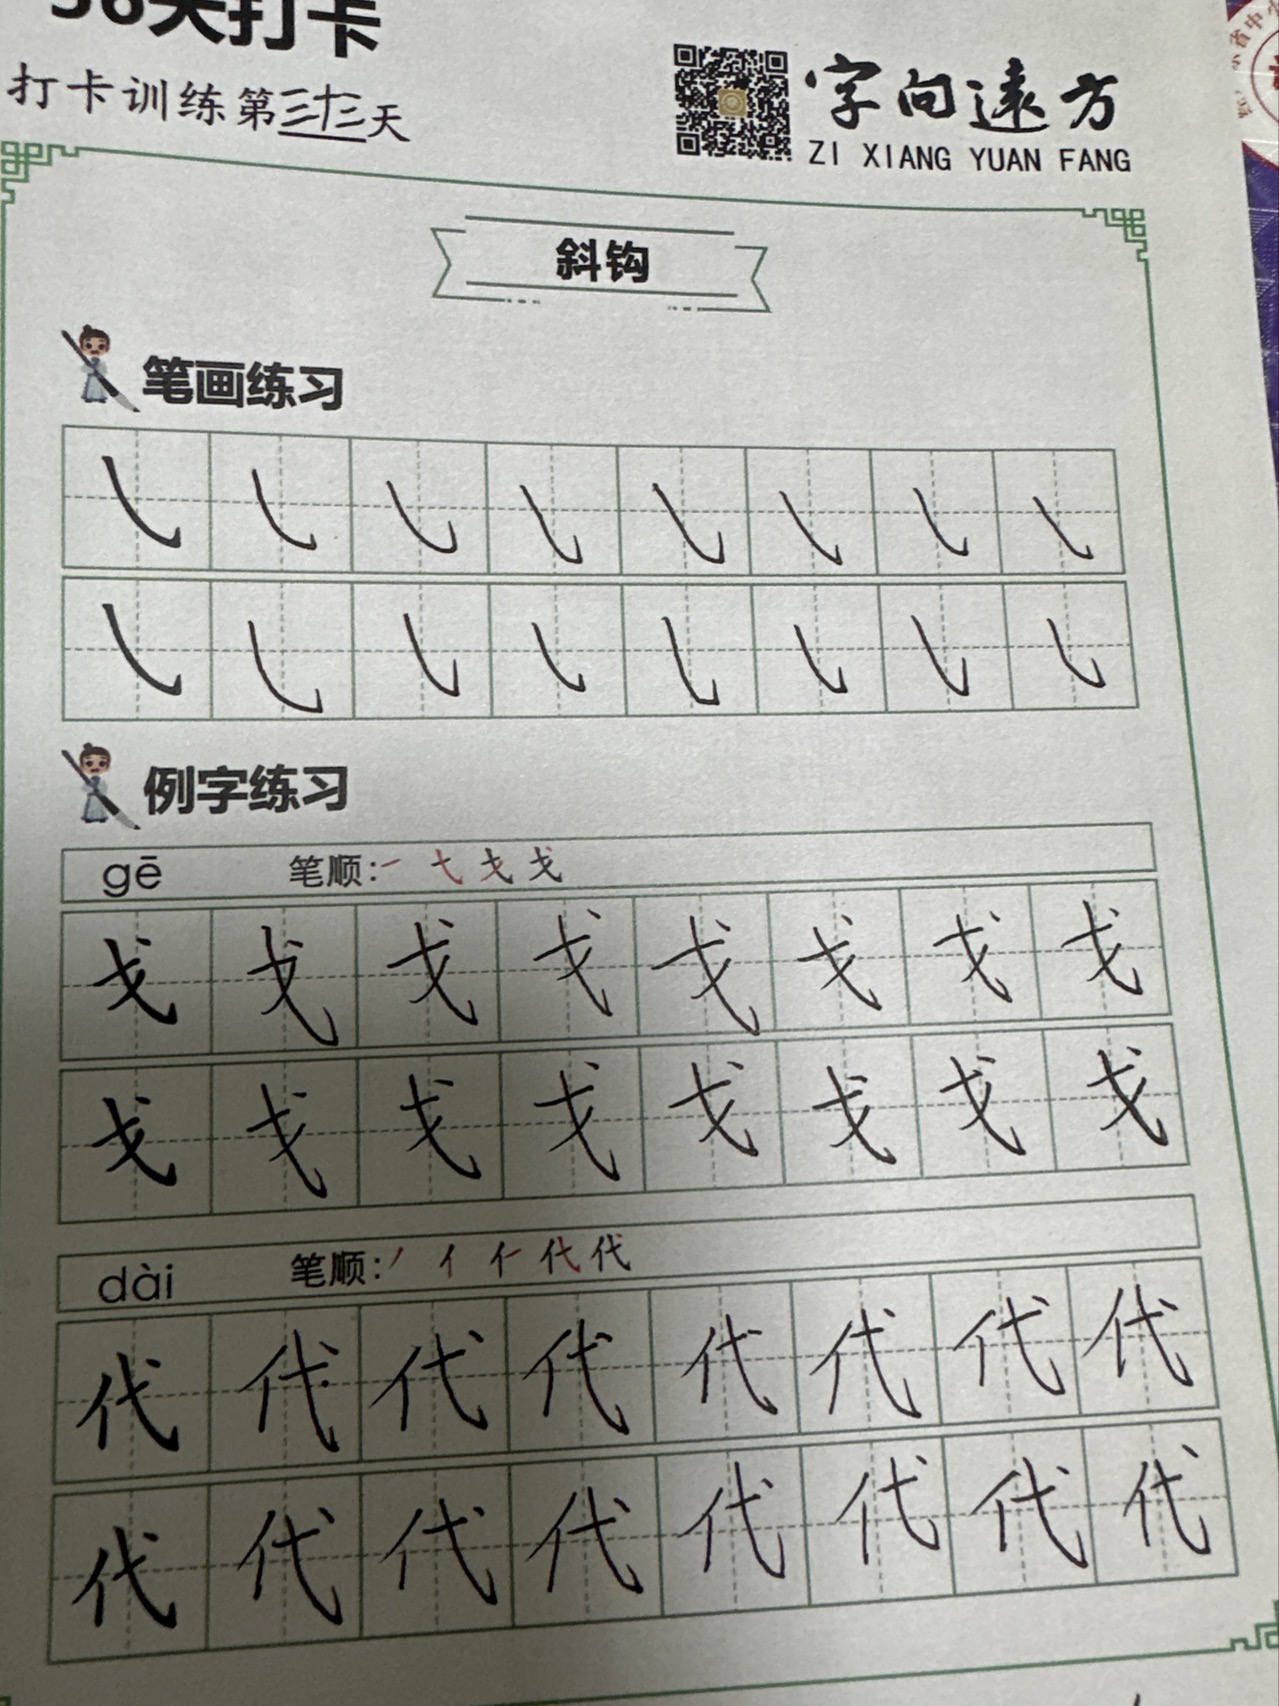 打卡
打卡训练第三十三天
字向远方
ZI XIANG YUAN FANG
斜钩
笔画练习
㇂ ㇂ ㇂ ㇂ ㇂ ㇂ ㇂ ㇂
㇂ ㇂ ㇂ ㇂ ㇂ ㇂ ㇂ ㇂
例字练习
gē 笔顺:
戈 戈 戈 戈 戈 戈 戈 戈
戈 戈 戈 戈 戈 戈 戈 戈
dài 笔顺:
代 代 代 代 代 代 代 代
代 代 代 代 代 代 代 代